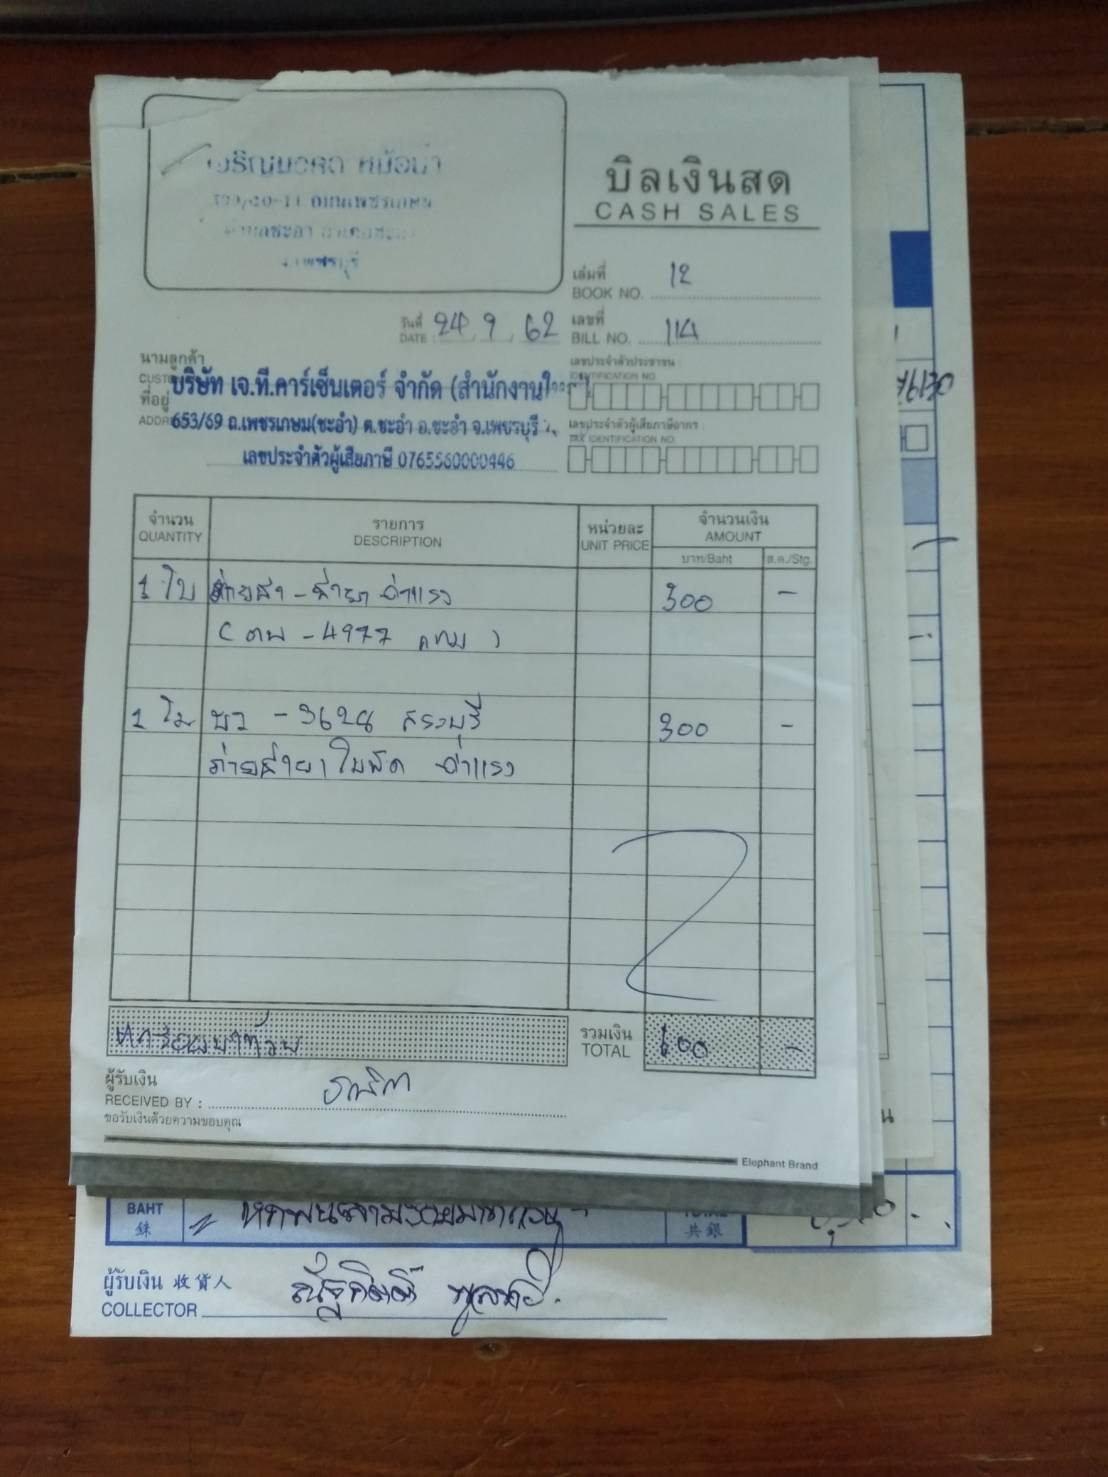 เจริญมงคล หม้อน้ำ
ถนนเพชรเกษม
ตำบลชะอำ อำเภอชะอำ
จ.เพชรบุรี
บิลเงินสด
CASH SALES
เล่มที่
BOOK NO. 12
วันที่
DATE : 24, 9, 62
เลขที่
BILL NO. 114
นามลูกค้า
บริษัท เจ.ที.คาร์เซ็นเตอร์ จำกัด (สำนักงานใ
ที่อยู่
653/69 ถ.เพชรเกษม(ชะอำ) ต.ชะอำ อ.ชะอำ จ.เพชรบุรี
เลขประจำตัวผู้เสียภาษี 0765560000446
เลขประจำตัวประชาชน
IDENTIFICATION NO.
เลขประจำตัวผู้เสียภาษีอากร
TAX IDENTIFICATION NO.
จำนวน รายการ หน่วยละ จำนวนเงิน
QUANTITY DESCRIPTION UNIT PRICE AMOUNT
บาท/Baht ส.ต./Stg.
1 ใบ ค่าแรง 300 -
- 4977 กทม )
1 ใบ - 3624 สระบุรี 300 -
ใบพัด ค่าแรง
หกร้อยบาทถ้วน
รวมเงิน
TOTAL 600 -
ผู้รับเงิน
RECEIVED BY :
ขอรับเงินด้วยความขอบคุณ
Elephant Brand
BAHT
銖
共銀
ผู้รับเงิน 收貨人
COLLECTOR